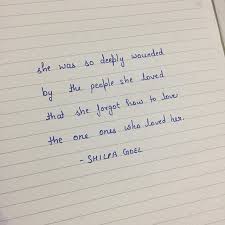 she was so deeply wounded
by the people she loved
that she forgot how to love
the one ones who loved her.
- SHILPA GOEL